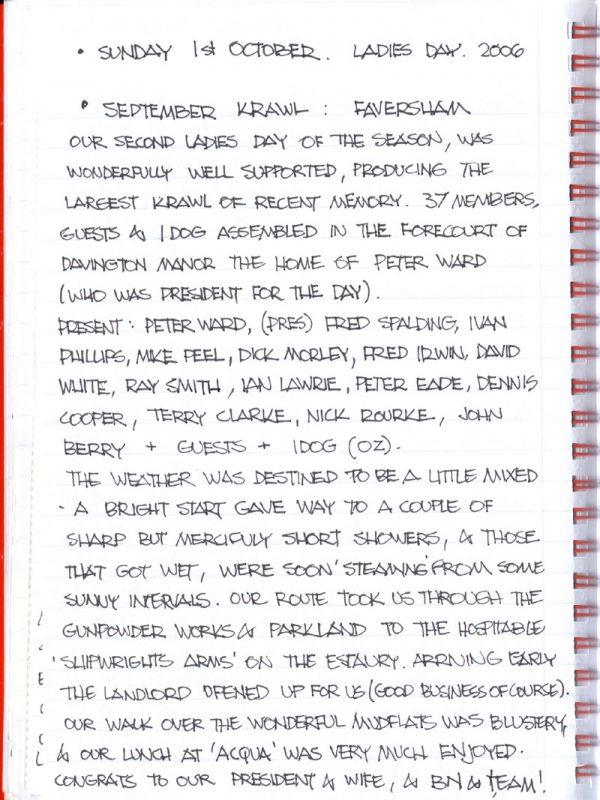 • SUNDAY 1st OCTOBER. LADIES DAY. 2006
• SEPTEMBER KRAWL : FAVERSHAM
OUR SECOND LADIES DAY OF THE SEASON, WAS
WONDERFULLY WELL SUPPORTED, PRODUCING THE
LARGEST KRAWL OF RECENT MEMORY. 37 MEMBERS,
GUESTS & 1 DOG ASSEMBLED IN THE FORECOURT OF
DAVINGTON MANOR THE HOME OF PETER WARD
(WHO WAS PRESIDENT FOR THE DAY).
PRESENT: PETER WARD, (PRES) FRED SPALDING, IVAN
PHILLIPS, MIKE PEEL, DICK MORLEY, FRED IRWIN, DAVID
WHITE, RAY SMITH, IAN LAWRIE, PETER EADE, DENNIS
COOPER, TERRY CLARKE, NICK ROURKE, JOHN
BERRY + GUESTS + 1 DOG (OZ).
THE WEATHER WAS DESTINED TO BE A LITTLE MIXED
- A BRIGHT START GAVE WAY TO A COUPLE OF
SHARP BUT MERCIFULY SHORT SHOWERS, & THOSE
THAT GOT WET, WERE SOON 'STEAMING' FROM SOME
SUNNY INTERVALS. OUR ROUTE TOOK US THROUGH THE
GUNPOWDER WORKS & PARKLAND TO THE HOSPITABLE
'SHIPWRIGHTS ARMS' ON THE ESTAURY. ARRIVING EARLY
THE LANDLORD OPENED UP FOR US (GOOD BUSINESS OF COURSE).
OUR WALK OVER THE WONDERFUL MUDFLATS WAS BLUSTERY,
& OUR LUNCH AT 'ACQUA' WAS VERY MUCH ENJOYED.
CONGRATS TO OUR PRESIDENT & WIFE, & & TEAM!